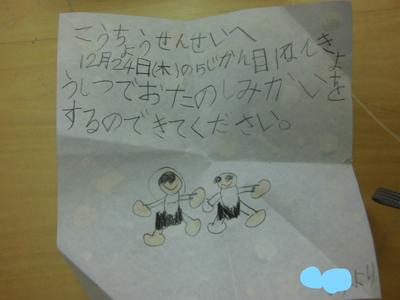 こうちょうせんせいへ
12月24日(木)の5じかん目1ねんきょ
うしつでおたのしみかいを
するのできてください。
より